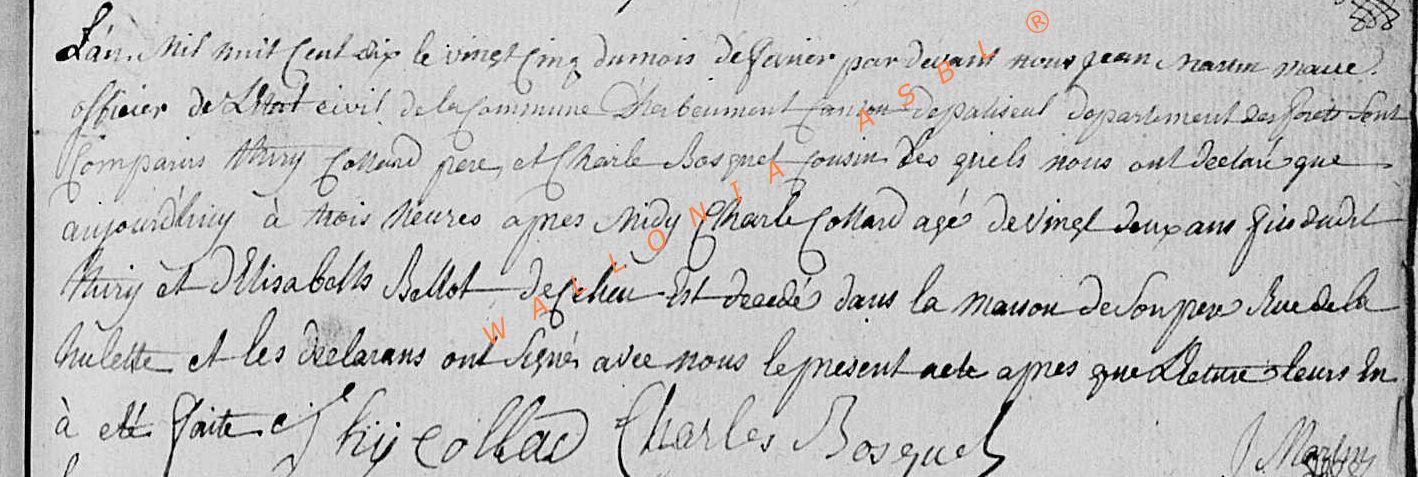 L'an Mil huit Cent dix le vingt Cinq du mois de fevrier par devant nous jean Marin maire
officier de L'Etat civil de la Commune D'herbeumont Canton de paliseul departement des forets Sont
Comparus thiry Collard pere et Charle Bosquet Cousin Les quels nous ont declaré que
aujourdhuy à trois heures apres Midy Charle Collard agé de vingt deux ans fils dudit
thiry et d'Elisabeth Bellot de Ce lieu Est decedé dans la maison de Son pere Rue de la
hulette et les declarans ont Signés avec nous le present acte apres que Lleture leurs En
à eté faite
Thiy Collad Charles Bosquet
J Marin
WALLONIA ASBL ®